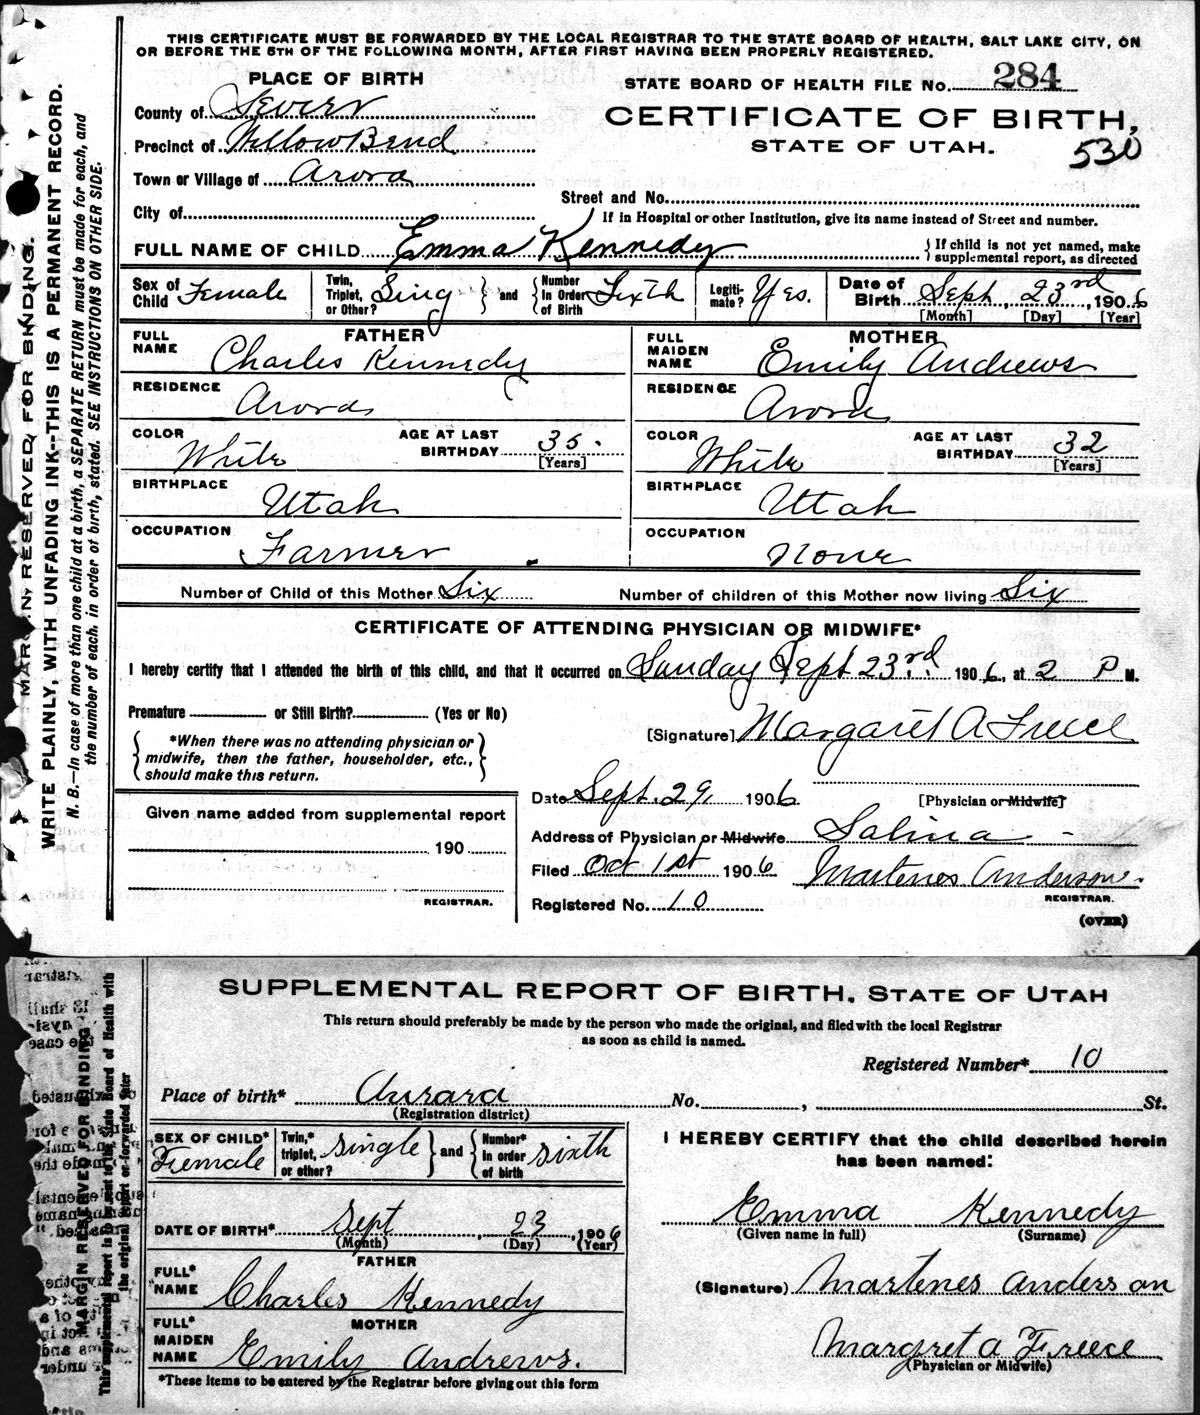 THIS CERTIFICATE MUST BE FORWARDED BY THE LOCAL REGISTRAR TO THE STATE BOARD OF HEALTH, SALT LAKE CITY, ON
OR BEFORE THE 5TH OF THE FOLLOWING MONTH, AFTER FIRST HAVING BEEN PROPERLY REGISTERED.
PLACE OF BIRTH
STATE BOARD OF HEALTH FILE No. 284
County of Sevier
CERTIFICATE OF BIRTH,
Precinct of Willow Bend
STATE OF UTAH.
530
Town or Village of Arora
Street and No.
City of
If in Hospital or other Institution, give its name instead of Street and number.
FULL NAME OF CHILD Emma Kennedy
If child is not yet named, make
supplemental report, as directed
Sex of Child Female
Twin, Triplet, or Other? Sing
and
Number In Order of Birth Sixth
Legiti-mate? Yes.
Date of Birth Sept. 23rd, 1906
[Month] [Day] [Year]
FATHER
FULL NAME Charles Kennedy
RESIDENCE Arora
COLOR White
AGE AT LAST BIRTHDAY 35. [Years]
BIRTHPLACE Utah
OCCUPATION Farmer
MOTHER
FULL MAIDEN NAME Emily Andrews
RESIDENCE Arora
COLOR White
AGE AT LAST BIRTHDAY 32 [Years]
BIRTHPLACE Utah
OCCUPATION None
Number of Child of this Mother Six
Number of children of this Mother now living Six
CERTIFICATE OF ATTENDING PHYSICIAN OR MIDWIFE*
I hereby certify that I attended the birth of this child, and that it occurred on Sunday Sept 23rd. 1906, at 2 P M.
Premature or Still Birth? (Yes or No)
[Signature] Margaret A Freece
*When there was no attending physician or
midwife, then the father, householder, etc.,
should make this return.
Date Sept. 29, 1906.
[Physician or Midwife]
Given name added from supplemental report
190
REGISTRAR.
Address of Physician or Midwife Salina -
Filed Oct 1st 1906 Martenes Anderson.
REGISTRAR.
Registered No. 10
(OVER)
MARGIN RESERVED FOR BINDING.
WRITE PLAINLY, WITH UNFADING INK--THIS IS A PERMANENT RECORD.
N. B.—In case of more than one child at a birth, a SEPARATE RETURN must be made for each, and
the number of each, in order of birth, stated. SEE INSTRUCTIONS ON OTHER SIDE.
SUPPLEMENTAL REPORT OF BIRTH. STATE OF UTAH
This return should preferably be made by the person who made the original, and filed with the local Registrar
as soon as child is named.
Registered Number* 10
Place of birth* Aurara No. , St.
(Registration district)
SEX OF CHILD* Female
Twin,* triplet, or other? single
and
Number* in order of birth sixth
DATE OF BIRTH* Sept 23, 1906
(Month) (Day) (Year)
FATHER
FULL* NAME Charles Kennedy
MOTHER
FULL* MAIDEN NAME Emily Andrews.
*These items to be entered by the Registrar before giving out this form
I HEREBY CERTIFY that the child described herein
has been named:
Emma Kennedy
(Given name in full) (Surname)
(Signature) Martenes Anderson
Margret A Freece
(Physician or Midwife)
MARGIN RESERVED FOR BINDING
This supplemental report is to be sent to the State Board of Health with
the original report or forwarded later